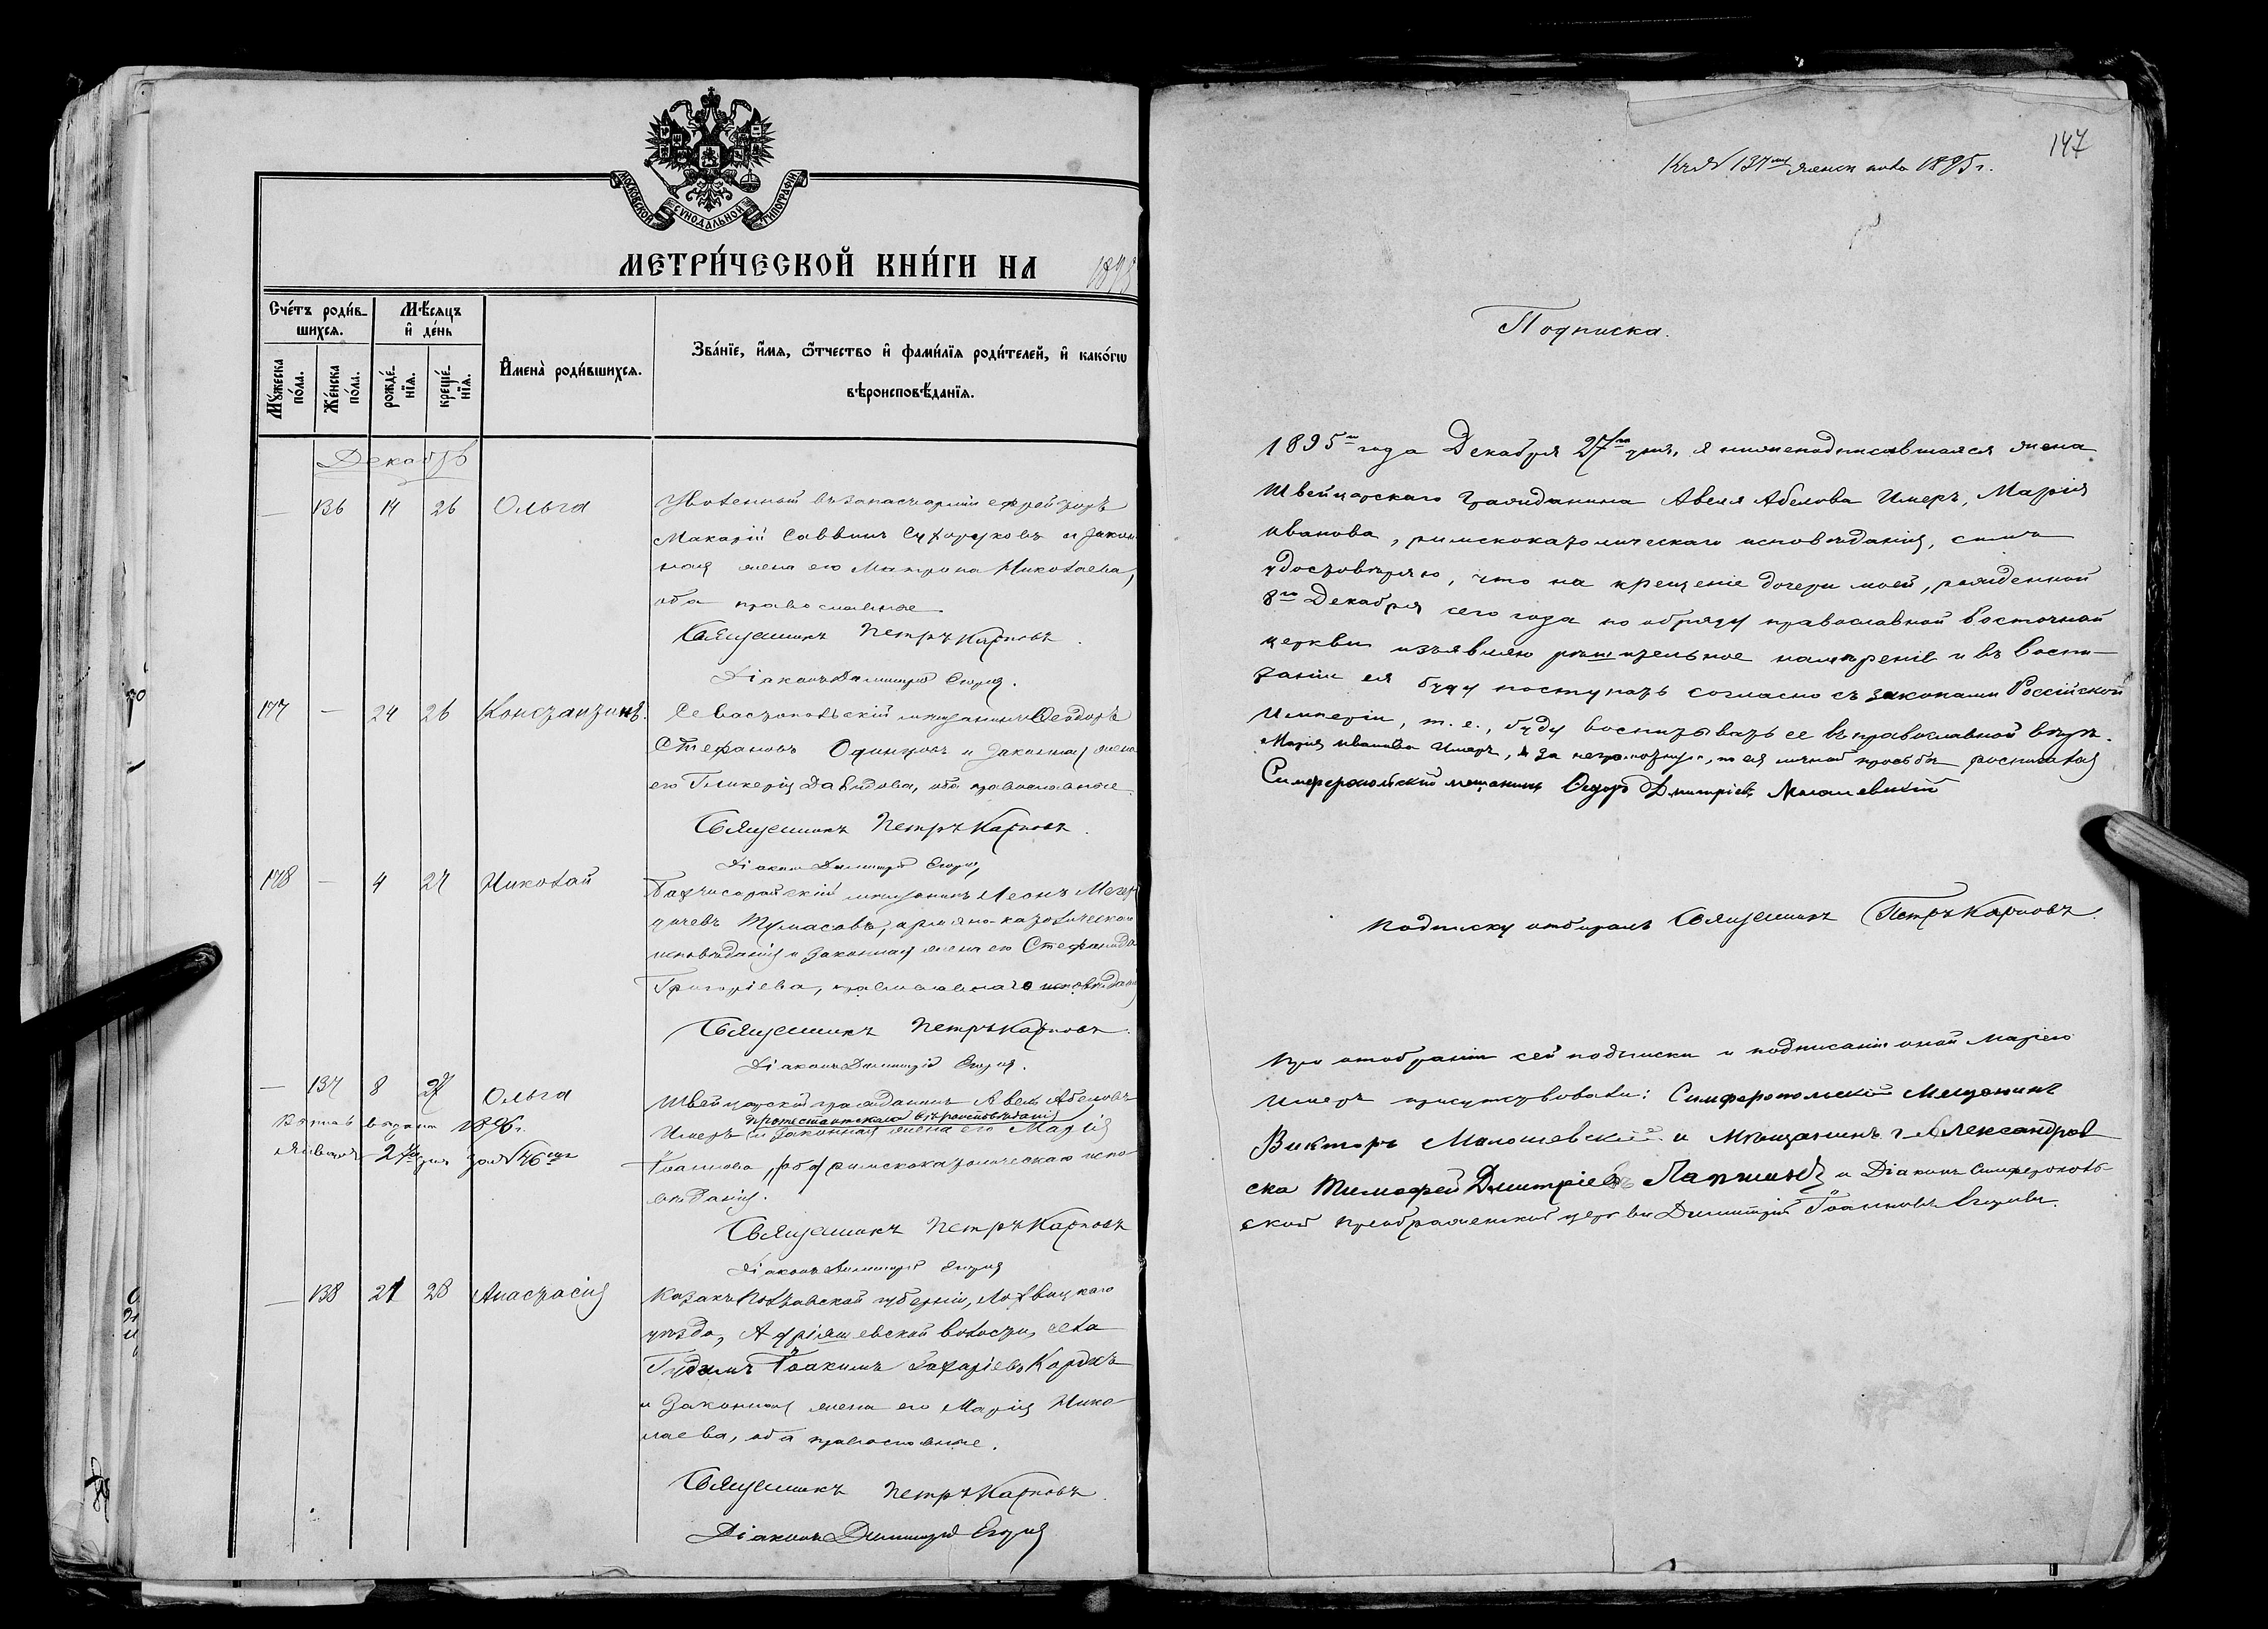 МОСКОВСКОЙ СѴНОДАЛЬНОЙ ТИПОГРАФІИ
МЕТРИ́ЧЕСКОЙ КНИ́ГИ НА 1895
Сче́тъ роди́в-
шихся.
Мѣ́сяцъ
и҆ де́нь
Мꙋ́жеска по́ла.
Же́нска по́ла.
рожде́-нїѧ.
креще́-нїѧ.
И҆мена̀ роди́вшихсѧ.
Зва́нїе, и҆́мѧ, ѻ҆́тчество и҆ фами́лїѧ роди́телей, и҆ како́гѡ
вѣроисповѣ́данїѧ.
Декабрь
— 136 14 26 Ольга
Уволенный въ запасъ арміи ефрейторъ
Макарій Саввинъ и закон
ная жена его Матрона Николаева,
оба православные
Священникъ Петръ Карповъ.
Діаконъ Димитрій
177 — 24 26 Константинъ.
Севастопольскій мѣщанинъ Ѳеодоръ
Стефановъ Одинцовъ и законная жена
его Гликерія Давидова, оба православные.
Священникъ Петръ Карповъ.
Діаконъ Димитрій
178 — 4 27 Николай
Бахчисарайскій мѣщанинъ Леонъ
Тумасовъ, армяно-католическаго
исповѣданія и законная жена его Стефанида
Григоріева, православнаго исповѣданія
Священникъ Петръ Карповъ.
Діаконъ Димитрій
— 137 8 27 Ольга
Швейцарскій гражданинъ Авель Абеловъ
протестантскаго вѣроисповѣданія
Имеръ и законная жена его Марія
Іоаннова, (оба) римскокатолическаго испо-
вѣданія.
1896 г.
Января 27 дня за № 46
Священникъ Петръ Карповъ
Діаконъ Димитрій
— 138 21 28 Анастасія
Козакъ Полтавской губерніи, Лохвицкаго
уѣзда, волости, села
Іоакимъ Захаріевъ
и законная жена его Марія Нико-
лаева, оба православные.
Священникъ Петръ Карповъ.
Діаконъ Димитрій
147
Къ № 137 женск пола 1895 г.
Подписка.
1895 года Декабря 27 дня, я нижеподписавшаяся жена
Швейцарскаго Гражданина Авеля Абелова Имеръ, Марія
Иванова, римскокатолическаго исповѣданія, симъ
удостовѣряю, что на крещеніе дочери моей, рожденной
8го Декабря сего года по обряду православной Восточной
церкви изъявляю рѣшительное намѣреніе и въ воспи-
таніи ея буду поступать согласно съ законами Россійской
Имперіи, т. е., буду воспитывать ее въ православной вѣрѣ.
Марія Иванова Имеръ, а за неграмотную, по ея личной просьбѣ росписался
Симферопольскій мещанинъ Ѳедоръ Дмитріевъ
Подписку отбиралъ Священникъ Петръ Карповъ.
При отобраніи сей подписки и подписаніи оной Маріею
Имеръ присутствовали: Симферопольскій Мещанинъ
Викторъ и Мѣщанинъ г. Александров
ска Тимофей Дмитріевъ и Діаконъ Симферополь-
ской Преображенской церкви Димитрій Іоанновъ